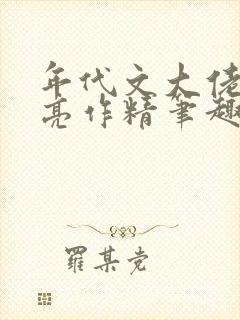 年代文大佬
亮作精笔趣
羅某党